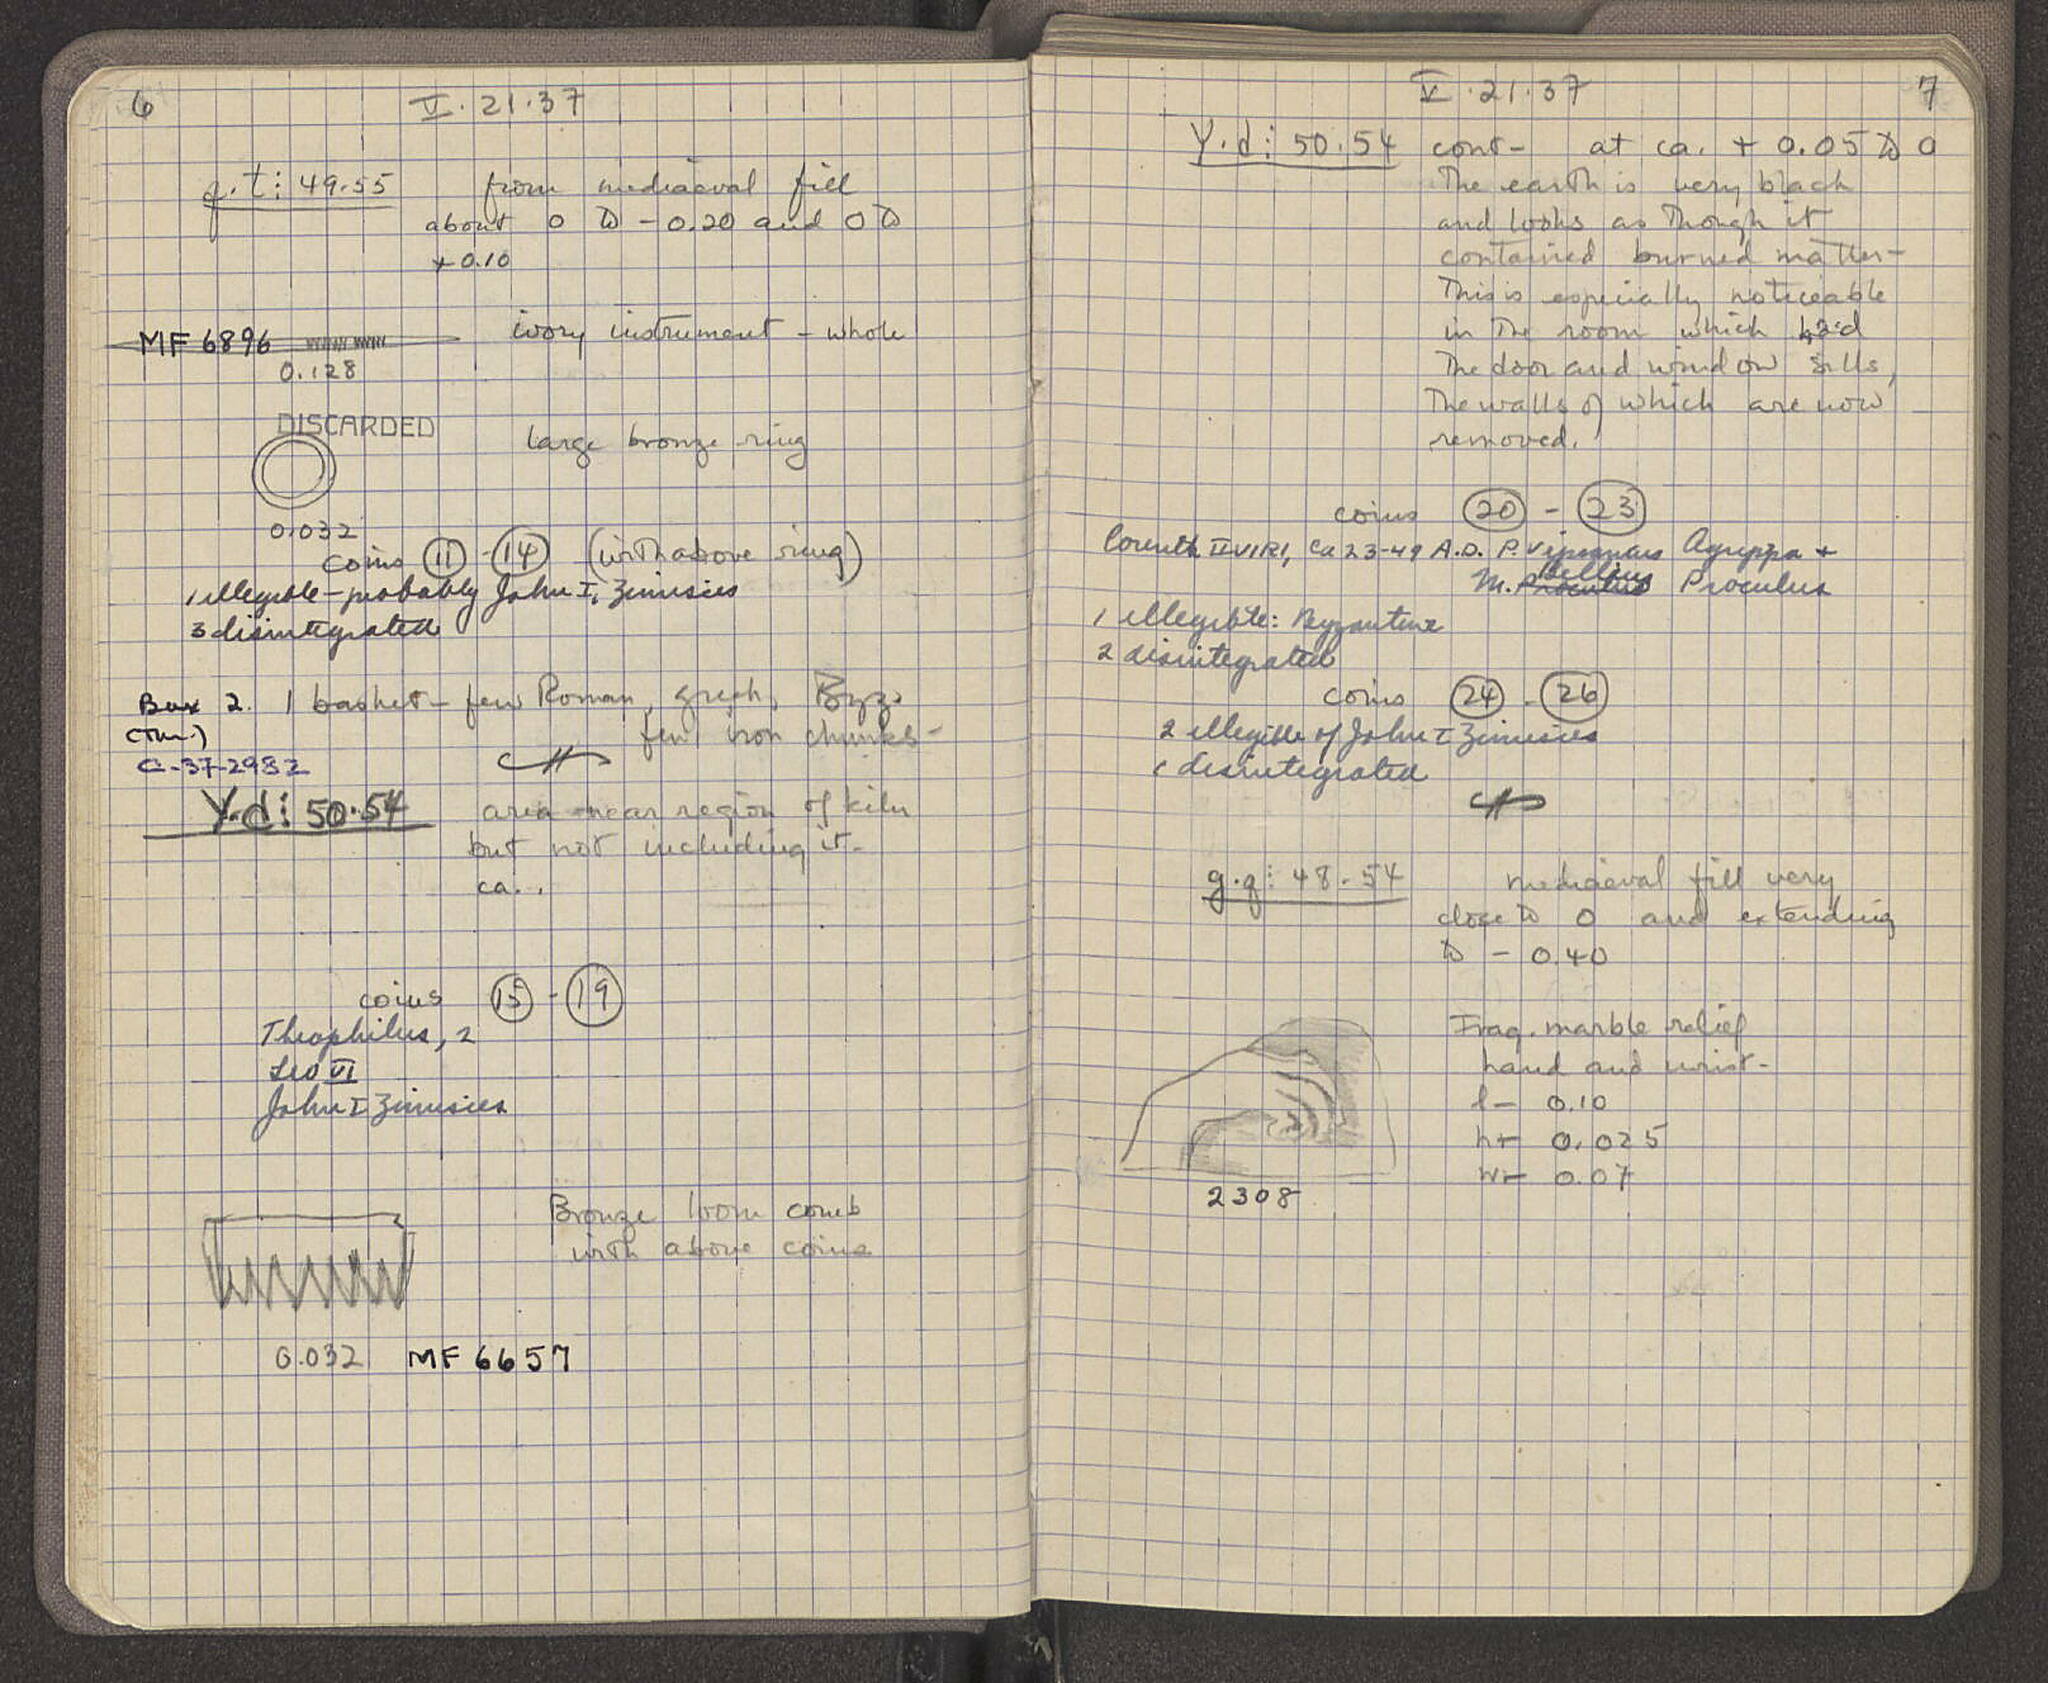 6
V.21.37
q.t: 49.55 from mediaeval fill
about 0 to -0.20 and 0 to
+0.10
MF 6896 ivory instrument - whole
0.128
DISCARDED
large bronze ring
0.032
coins 11 - 14 (with above ring)
1 illegible - probably John I, Zimisces
3 disintegrated
Box 2. 1 basket - few Roman, greek, Byz.
few iron chunks -
C-37-2982
Y.d: 50.54 area near region of kiln
but not including it -
ca.
coins 15 - 19
Theophilus, 2
Leo VI
John I Zimisces
Bronze loom comb
with above coins
0.032 MF 6657
V.21.37
7
Y.d: 50.54 cont- at ca. + 0.05 to 0
The earth is very black
and looks as though it
contained burned matter -
This is especially noticeable
in the room which had
the door and window sills,
the walls of which are now
removed.
coins 20 - 23
Corinth IIVIRI, ca 23-49 A.D. P. Vipsanius Agrippa +
M. Bellius Proculus
1 illegible: Byzantine
2 disintegrated
coins 24 - 26
2 illegible of John I Zimisces
1 disintegrated
g.q: 48.54 mediaeval fill very
close to 0 and extending
to - 0.40
Frag. marble relief
hand and wrist -
l - 0.10
h - 0.025
w - 0.07
2308